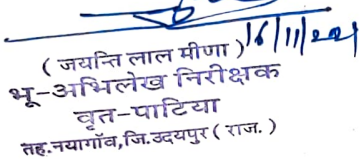 ( जयन्ति लाल मीणा ) 16/11/2021
भू-अभिलेख निरीक्षक
वृत-पाटिया
तह.नयागॉव,जि.उदयपुर ( राज. )